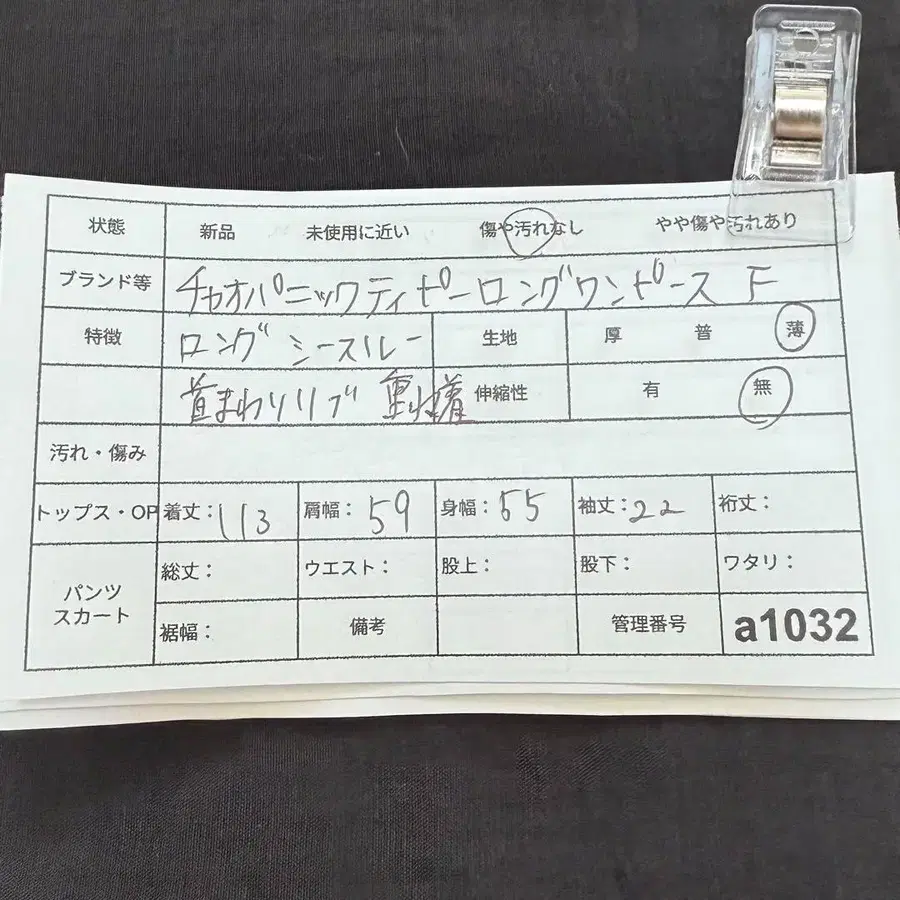 状態 新品 未使用に近い 傷や汚れなし やや傷や汚れあり
ブランド等 チャオパニックティピーロングワンピース F
特徴 ロング シースルー 生地 厚 普 薄
首まわりリブ 重ね着 伸縮性 有 無
汚れ・傷み
トップス・OP 着丈：113 肩幅：59 身幅：55 袖丈：22 裄丈：
パンツ スカート 総丈： ウエスト： 股上： 股下： ワタリ：
裾幅： 備考 管理番号 a1032